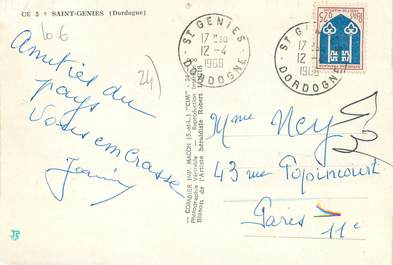 CE 5 * SAINT-GENIES (Dordogne)
24)
Amitiés du
pays
Vous embrasse
ST GENIES
17 H30
12 - 4
1966
DORDOGNE
ST GENIES
17 H30
12 - 4
1966
DORDOGNE
COMBIER IMP. MACON (S.-et-L.) "CIM"
Photographie Véritable - Reproduction Interdite
Blason de l'Artiste héraldiste Robert Louis
Mme Ney
43 rue Popincourt
Paris
11e